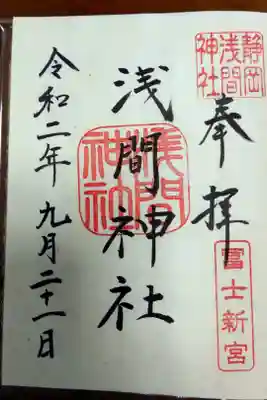 奉拝
静岡浅間神社
冨士新宮
浅間神社
浅間神社
令和二年九月二十一日